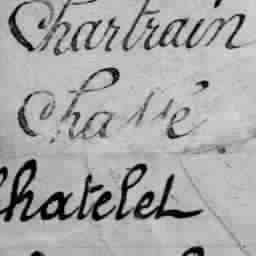 Chartrain
Chassé
Chatelet